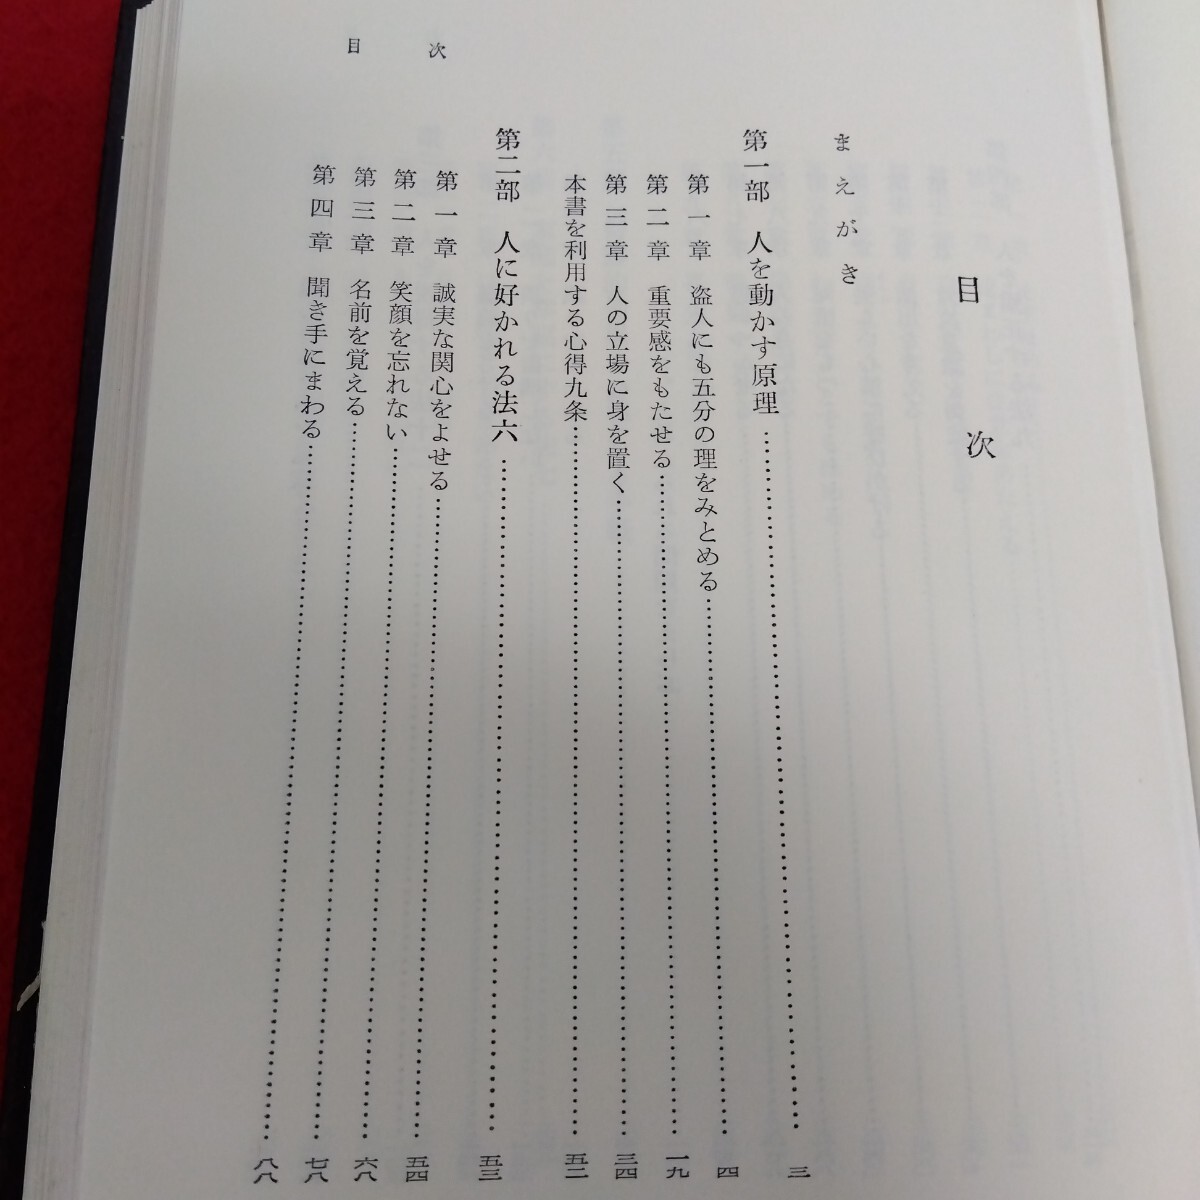 目次
目次
まえがき
第一部 人を動かす原理……三
第一章 盗人にも五分の理をみとめる……四
第二章 重要感をもたせる……一九
第三章 人の立場に身を置く……三四
本書を利用する心得九条……五二
第二部 人に好かれる法六……五三
第一章 誠実な関心をよせる……五四
第二章 笑顔を忘れない……六八
第三章 名前を覚える……七八
第四章 聞き手にまわる……八八